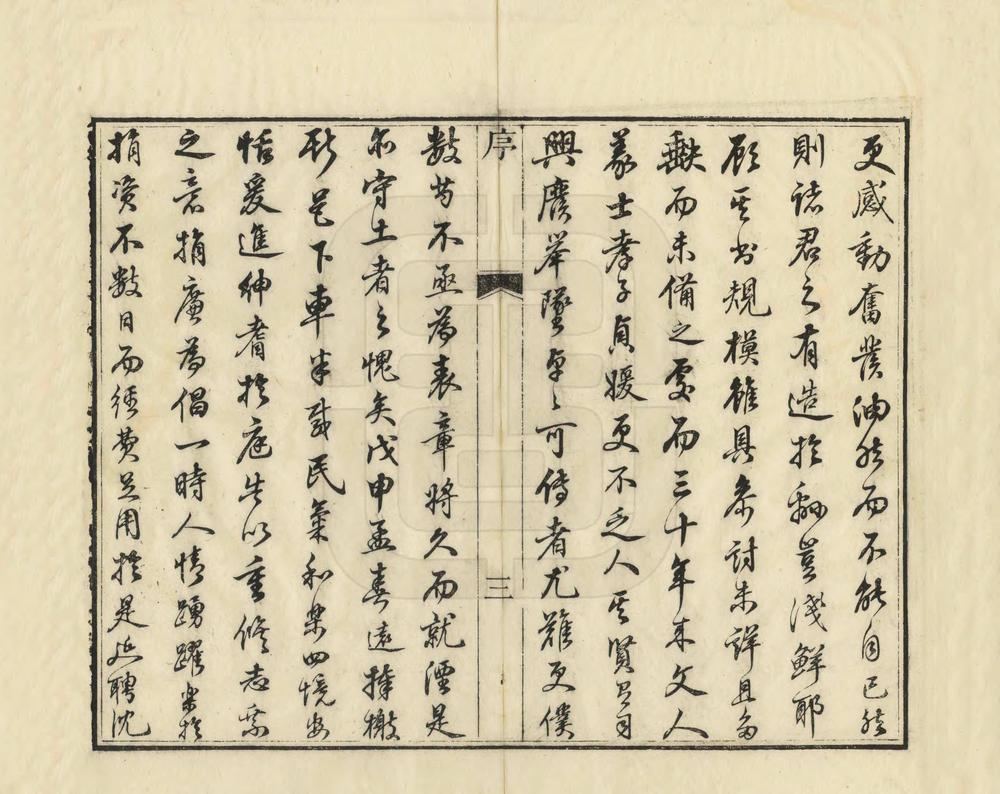 更感動奮發油然而不能自已然
則諸君之有造於豈淺鮮耶
顧其書規模雖具參討未詳且多
缺而未備之處而三十年來文人
義士孝子貞媛更不乏人其賢司
興廢舉墜卓々可傳者尤難更僕
序
三
數苟不亟為表章將久而就湮是
亦守土者之愧矣戊申孟春遠捧檄
斯邑下車半載民氣和樂四境安
恬爰進紳耆於庭告以重修志乘
之意捐廉為倡一時人情踴躍樂於
捐資不數日而經費足用於是延聘沈